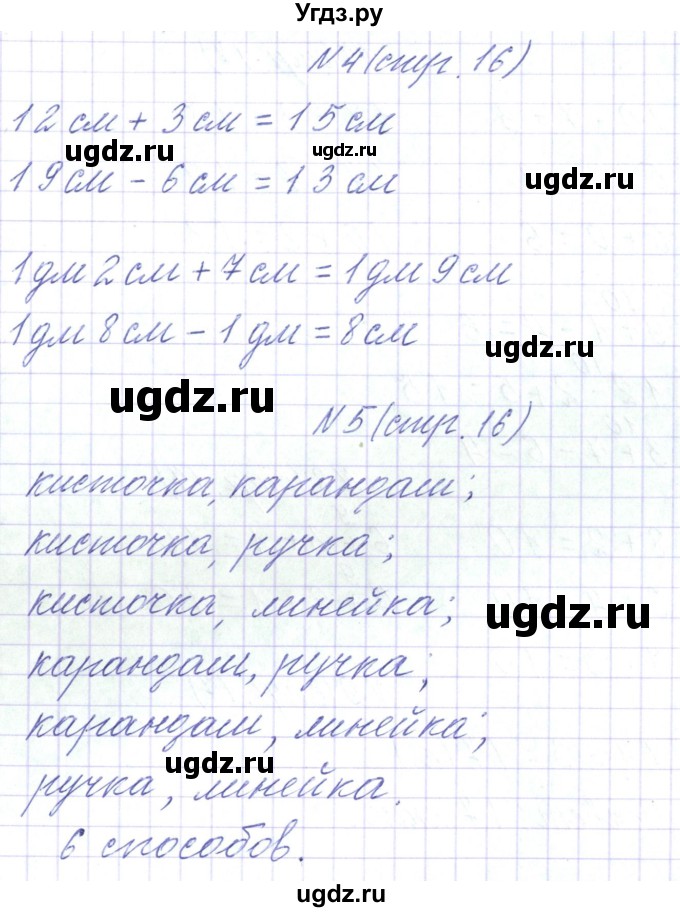 Угдз.ру
N4(стр. 16)
12см + 3см = 15см
ugdz.ru ugdz.ru
19см - 6см = 13см
ugdz.ru
1дм 2см + 7см = 1дм 9см
1дм 8см - 1дм = 8см
ugdz.ru
ugdz.ru
N5(стр. 16)
кисточка, карандаш;
кисточка, ручка;
кисточка, линейка;
ugdz.ru
карандаш, ручка;
карандаш, линейка;
ugdz.ru
ручка, линейка.
6 способов.
ugdz.ru